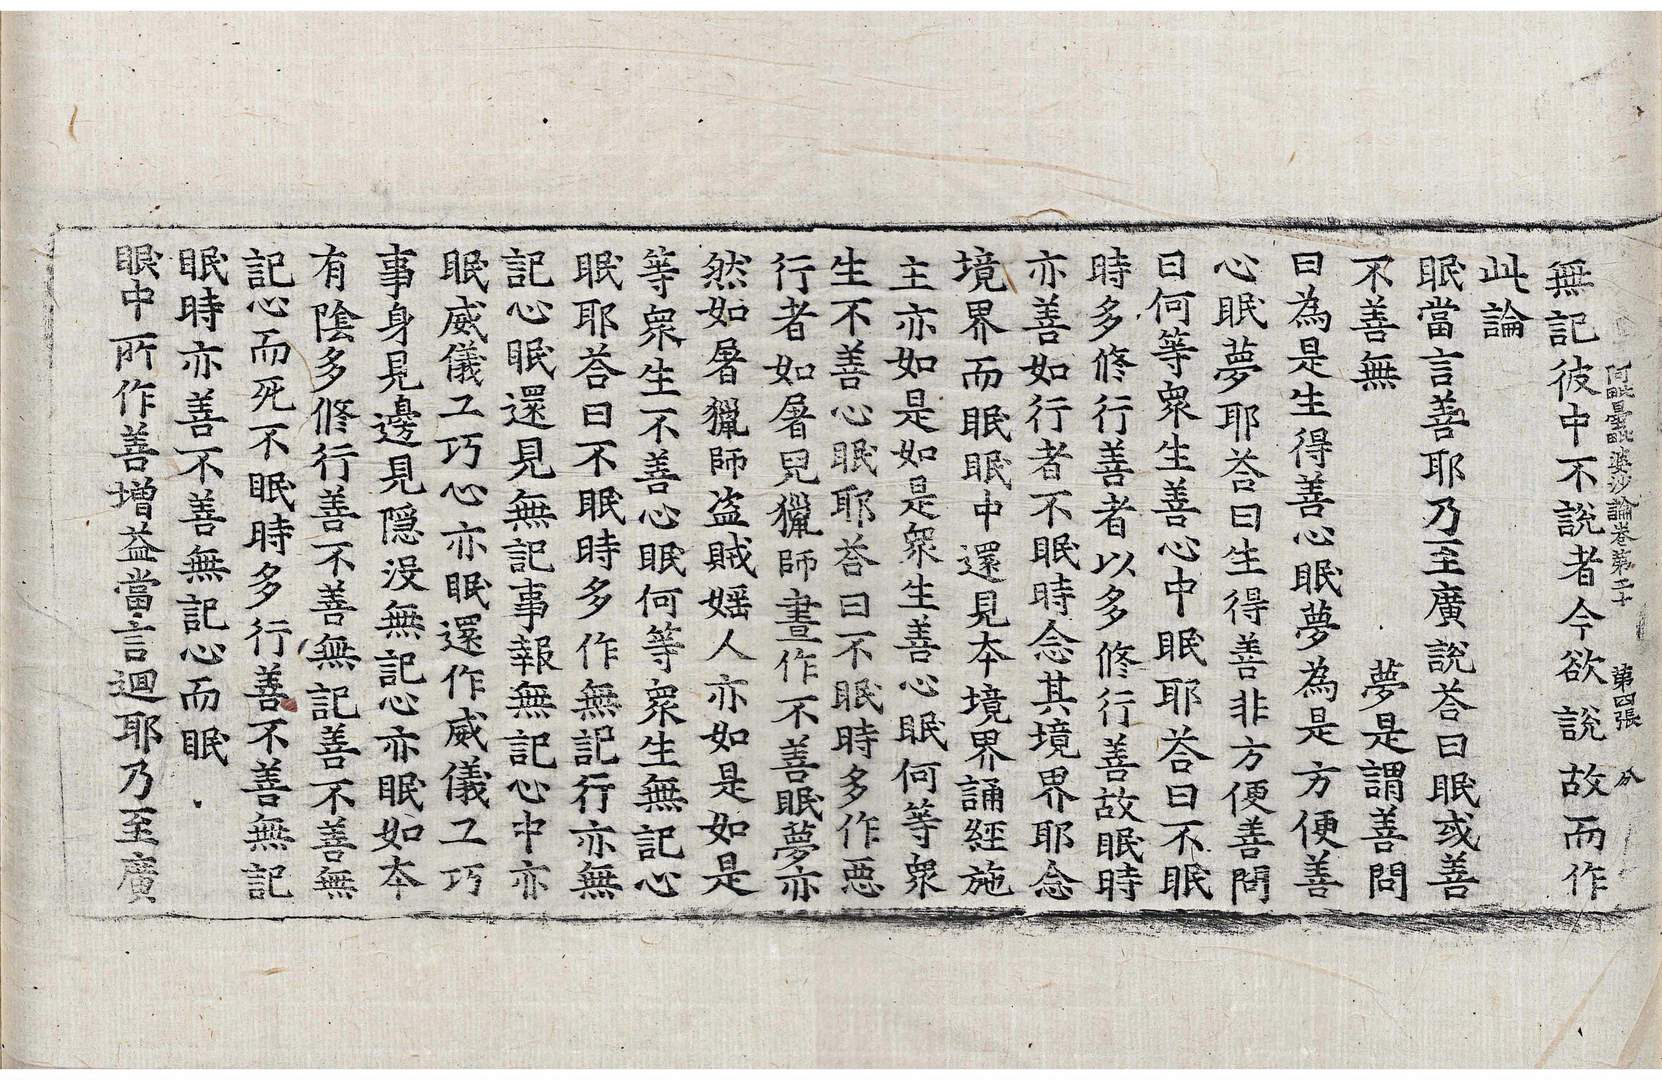 阿毗曇毗婆沙論卷第二十 第四張 分
無記彼中不說者今欲說故而作
此論
眠當言善耶乃至廣說荅曰眠或善
不善無 夢是謂善問
曰為是生得善心眠夢為是方便善
心眠夢耶荅曰生得善非方便善問
曰何等衆生善心中眠耶荅曰不眠
時多修行善者以多修行善故眠時
亦善如行者不眠時念其境界耶念
境界而眠眠中還見本境界誦經施
主亦如是如是衆生善心眠何等衆
生不善心眠耶荅曰不眠時多作惡
行者如屠兒獵師晝作不善眠夢亦
然如屠獵師盗賊婬人亦如是如是
等衆生不善心眠何等衆生無記心
眠耶荅曰不眠時多作無記行亦無
記心眠還見無記事報無記心中亦
眠威儀工巧心亦眠還作威儀工巧
事身見邊見隱沒無記心亦眠如本
有陰多修行善不善無記善不善無
記心而死不眠時多行善不善無記
眠時亦善不善無記心而眠
眠中所作善增益當言迴耶乃至廣